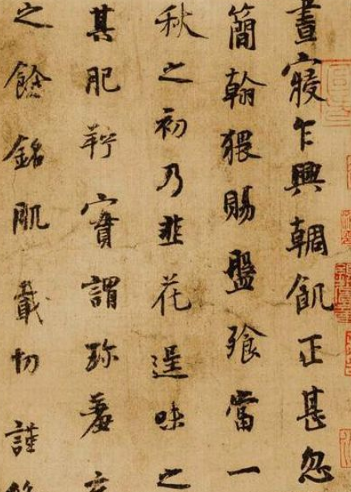 晝寢乍興輖飢正甚忽
簡翰猥賜盤飱當一
秋之初乃韭花逞味之
其肥羜實謂珍羞充
之餘銘肌載切謹